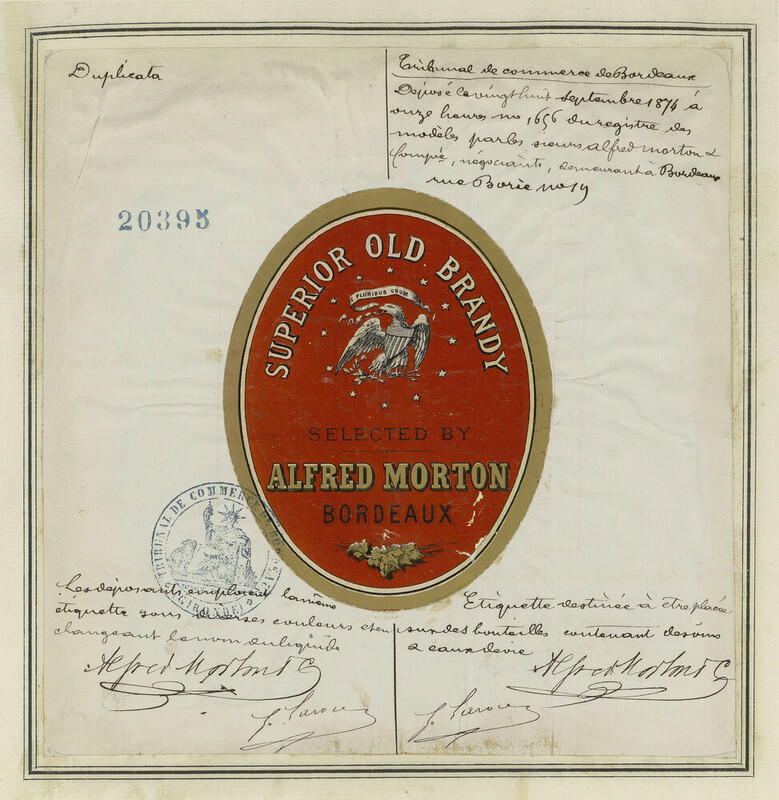 Duplicata
Tribunal de commerce de Bordeaux
Déposé le vingt huit septembre 1876 à
onze heures no 1656 du registre des
modèles par les sieurs alfred morton &
Compie, négociants, demeurant à Bordeaux
rue Borie no 19
20395
SUPERIOR OLD BRANDY
E PLURIBUS UNUM
SELECTED BY
ALFRED MORTON
BORDEAUX
TRIBUNAL DE COMMERCE DE BORDEAUX
(GIRONDE)
Les déposants emploient la même
étiquette sous diverses couleurs et en
changeant le nom du liquide
Alfred Morton & C
Etiquette destinée à etre placée
sur des bouteilles contenant des vins
& eaux de vie
Alfred Morton & C